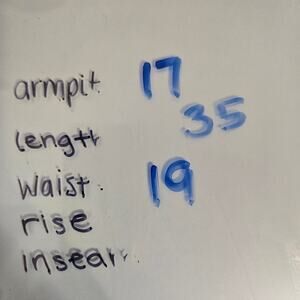 armpit 17
length 35
waist: 19
rise
inseam